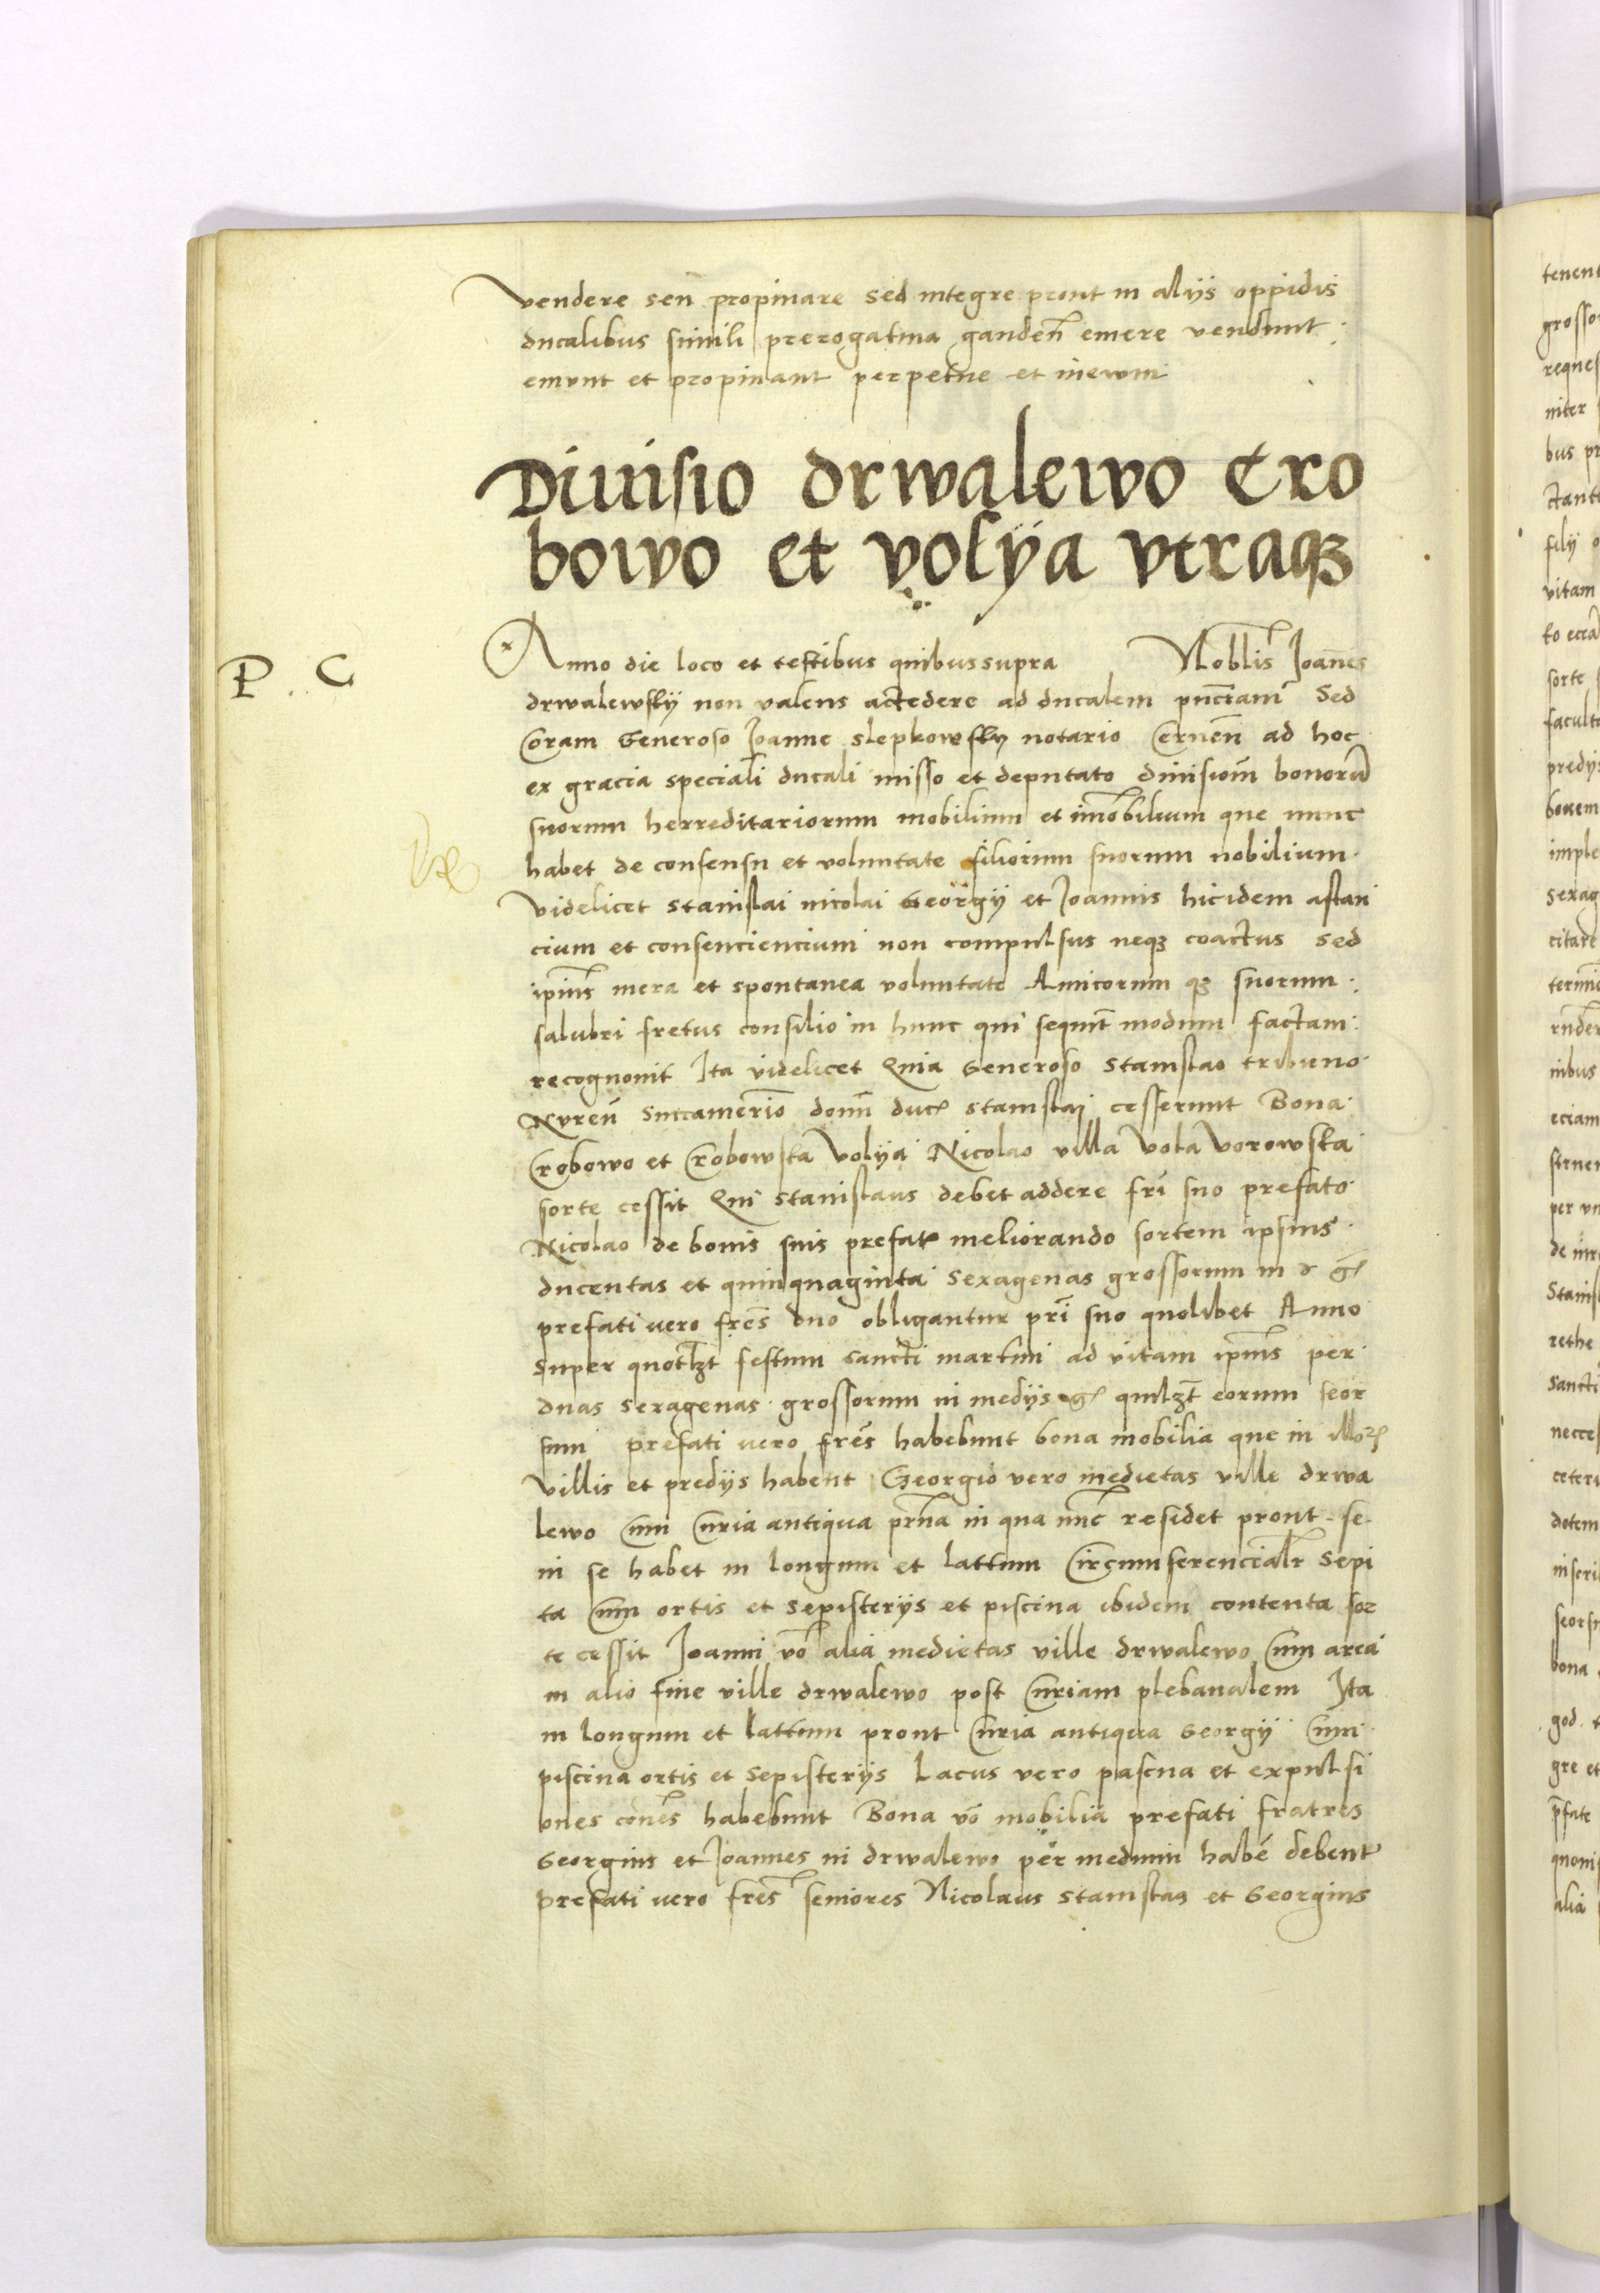 vendere seu propinare sed integre prout in alijs oppidis
ducalibus simili prerogatiua gauden̄ emere vendunt
emunt et propinant perpetue et in ewm
Diuisio drwalewo Cro
bowo et volÿa vtraqꝫ
P. C
Anno die loco et testibus quibussupra Noblis̄ Joannes
drwalewsky non valens accedere ad ducalem pnc̄iam Sed
Coram Generoso Joanne slepkowsky notario Cernen̄ ad hoc
ex gracia speciali ducali misso et deputato diuisiom̄ bonorū
suorum herreditariorum mobilium et imo̅bilium que nunc
habet de consensu et voluntate filiorum suorum nobilium
videlicet stanislai nicolai Georgÿ et Joannis hicidem astan
cium et consenciencium non compulsus neqꝫ coactus sed
ipius̄ mera et spontanea voluntate Amicorum qꝫ suorum
salubri fretus consilio in hunc qui sequit̄ modum factam
recognouit Ita videlicet Quia Generoso Stanislao tribuno
Nuren̄ succamerio̅ domi̅ duc̄ stanislaj cesserunt Bona
Crobowo et Crobowska volÿa Nicolao villa vola vorowska
sorte cessit Qui stanislaus debet addere fri̅ suo prefato
Nicolao de bonis suis prefat̄ meliorando sortem ipsius
ducentas et quinquaginta sexagenas grossorum in
prefati vero fres̅ duo obligantur pri̅ suo quolibet Anno
super quotlꝫt festum sancti martini ad vitam ipius̄ per
duas sexagenas grossorum in medijs g̅ quilꝫt eorum seor
sum prefati vero fres̅ habebunt bona mobilia que in illoꝝ
villis et predijs habent Georgio vero medietas ville drwa
lewo Cum Curia antiqua prn̅a in qua nu̅c residet prout se
in se habet in longum et lattum Circumferencialr̅ sepi
ta Cum ortis et sepisterijs et piscina ibidem contenta sor
te cessit Joanni vo̅ alia medietas ville drwalewo Cum area
in alio fine ville drwalewo post Curiam plebanalem Ita
in longum et lattum prout Curia antiqua Georgÿ Cum
piscina ortis et sepisterijs Lacus vero pascua et expulsi
ones co̅nes̅ habebunt Bona vo̅ mobilia prefati fratres
Georgius et Joannes in drwalewo per medium habe̅ debent
prefati vero fres̅ seniores Nicolaus stanislaus et Georgius